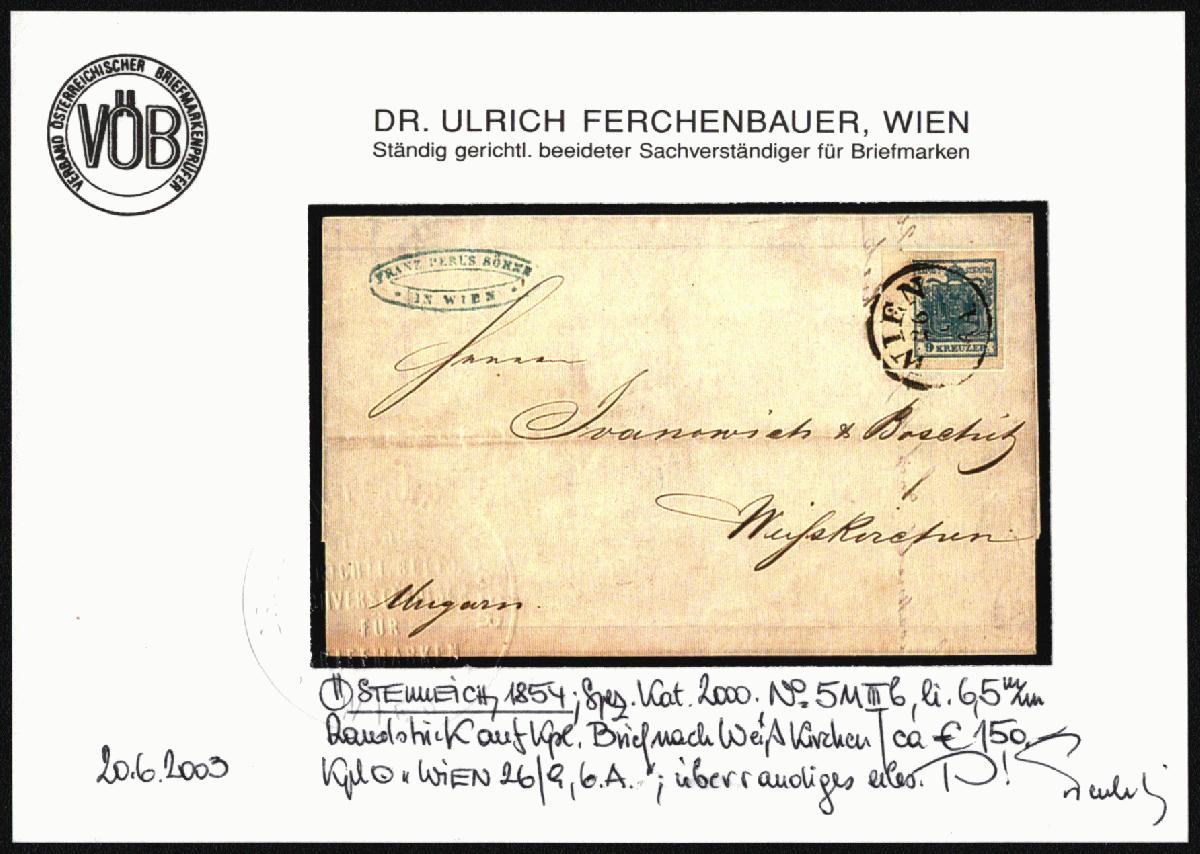 VERBAND ÖSTERREICHISCHER BRIEFMARKENPRÜFER
VÖB
DR. ULRICH FERCHENBAUER, WIEN
Ständig gerichtl. beeideter Sachverständiger für Briefmarken
FRANZ PERL'S SÖHNE
IN WIEN
WIEN
9 KREUZER
Herren
Ivanowich & Boschitz
Weisskirchen
Ungarn.
FÜR
BRIEFMARKEN
ÖSTERREICH, 1854; Spez. Kat. 2000. No. 5M III b, li. 6,5 mm
Randstück auf kpl. Brief nach Weißkirchen / ca € 150.-
Kpl O "WIEN 26/9, 6.A."; überrandiges
20.6.2003